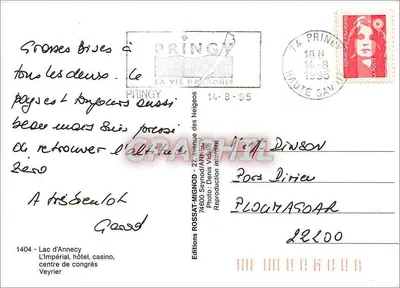 Grosses bises à
tous les deux. Le
pays est toujours aussi
beau mais suis pressé
de retrouver l'altitude
zéro
A très bientôt
PRINGY
LA VIE
PRINGY
14-8-95
74 PRINGY
18H
14-8
1995
HAUTE SAVOIE
DINSON
PLOUMAGOAR
22200
1404 - Lac d'Annecy
L'Impérial, hôtel, casino,
centre de congrès
Veyrier
Editions ROSSAT-MIGNOD - 27, avenue des Neigeos
74600 Seynod/Annecy
Photo : Denis Vidal
Reproduction interdite